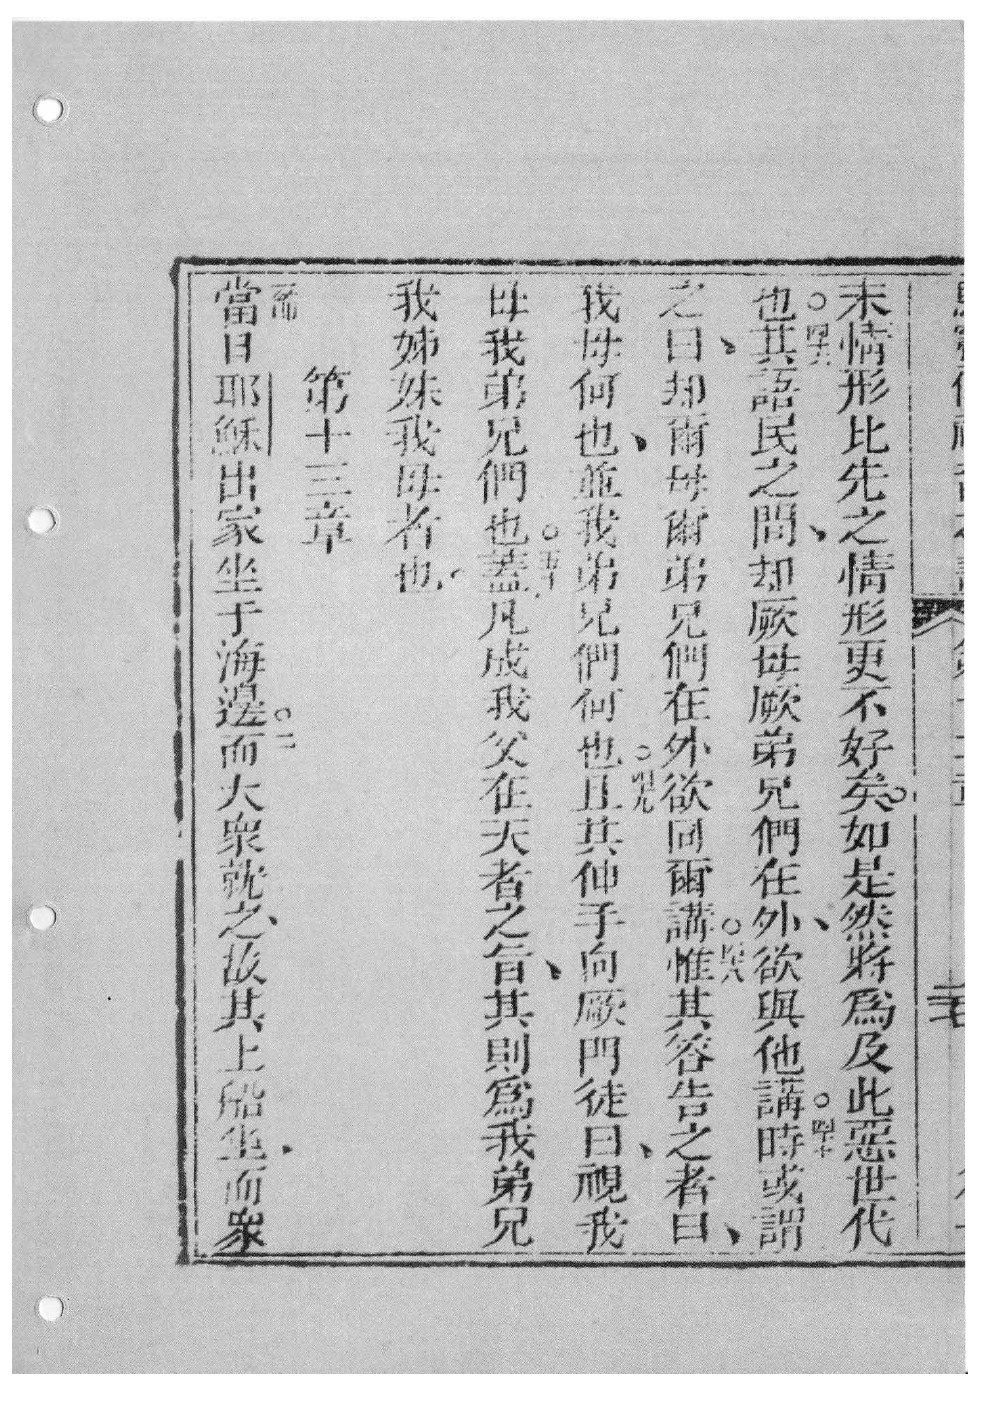 末情形比先之情形更不好矣。如是然將爲及此惡世代
也。四六其語民之間、却厥母厥弟兄們在外、欲與他講。四七時或謂
之曰、却爾母爾弟兄們在外欲同爾講。四八惟其答告之者曰、
我母何也、並我弟兄們何也。四九且其伸手向厥門徒曰、視我
母我弟兄們也。五十蓋凡成我父在天者之旨、其則爲我弟兄
我姊妹我母者也。
第十三章
一節當日耶穌出家坐于海邊。二而大衆就之、故其上船坐、而衆